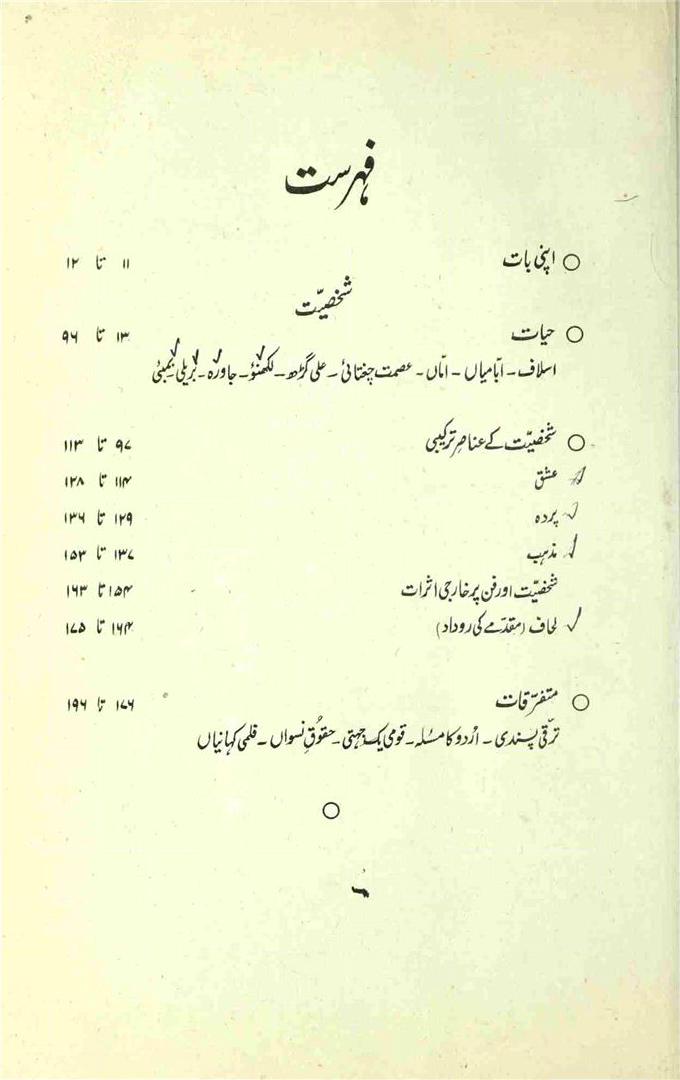 فہرست
○ اپنی بات ۱۱ تا ۱۲
شخصیّت
○ حیات ۱۳ تا ۹۶
اسلاف ۔ ابّامیاں ۔ امّاں ۔ عصمت چغتائی ۔ علی گڑھ ۔ لکھنؤ ۔ جاورہ ۔ بریلی ۔ بمبئی
○ شخصیّت کے عناصرِ ترکیبی ۹۷ تا ۱۱۳
عشق ۱۱۴ تا ۱۲۸
پردہ ۱۲۹ تا ۱۳۶
مذہب ۱۳۷ تا ۱۵۳
شخصیّت اور فن پر خارجی اثرات ۱۵۴ تا ۱۶۳
لحاف (مقدّمے کی روداد) ۱۶۴ تا ۱۷۵
○ متفرّقات ۱۷۶ تا ۱۹۶
ترقّی پسندی ۔ اُردو کا مسئلہ ۔ قومی یک جہتی ۔ حقوقِ نسواں ۔ فلمی کہانیاں
○